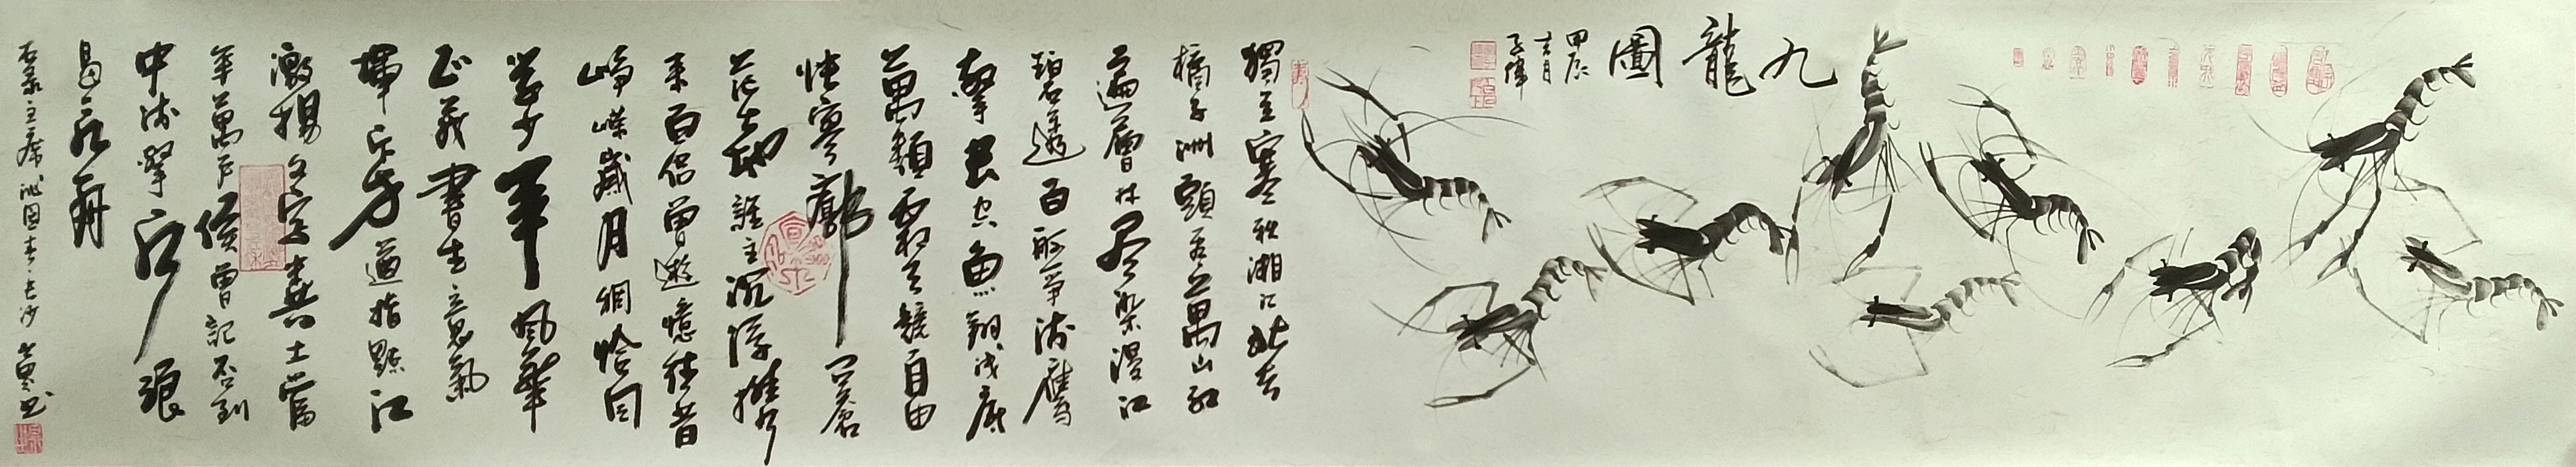 九龍圖
甲辰
吉月
獨立寒秋湘江北去
橘子洲頭看萬山紅
遍層林尽染漫江
碧透百舸爭流鷹
擊長空魚翔淺底
萬類霜天競自由
悵寥廓問蒼
茫大地誰主沉浮攜
來百侶曾遊憶往昔
崢嶸歲月稠恰同
學少年風華
正茂書生意氣
揮斥方遒指點江
激揚文字糞土當
年萬戶侯曾記否到
中流擊水浪
遏飛舟
右录主席沁园春长沙 书